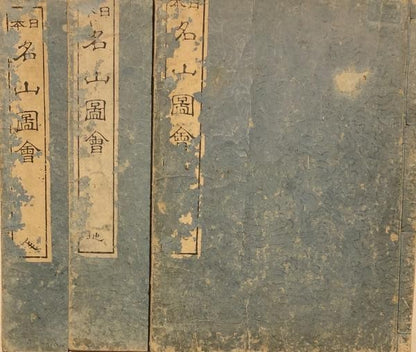 日
名山圖會
日本
名山圖會
地
日本
名山圖會
人